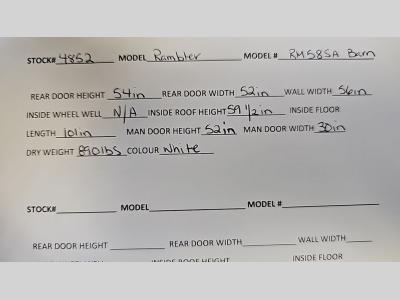 STOCK# 4852 MODEL Rambler MODEL # RM585A Barn
REAR DOOR HEIGHT 54in REAR DOOR WIDTH 52in WALL WIDTH 56in
INSIDE WHEEL WELL N/A INSIDE ROOF HEIGHT 59 1/2 in INSIDE FLOOR
LENGTH 101in MAN DOOR HEIGHT 52in MAN DOOR WIDTH 30in
DRY WEIGHT 890lbs COLOUR White
STOCK# MODEL MODEL #
REAR DOOR HEIGHT REAR DOOR WIDTH WALL WIDTH
INSIDE ROOF HEIGHT INSIDE FLOOR